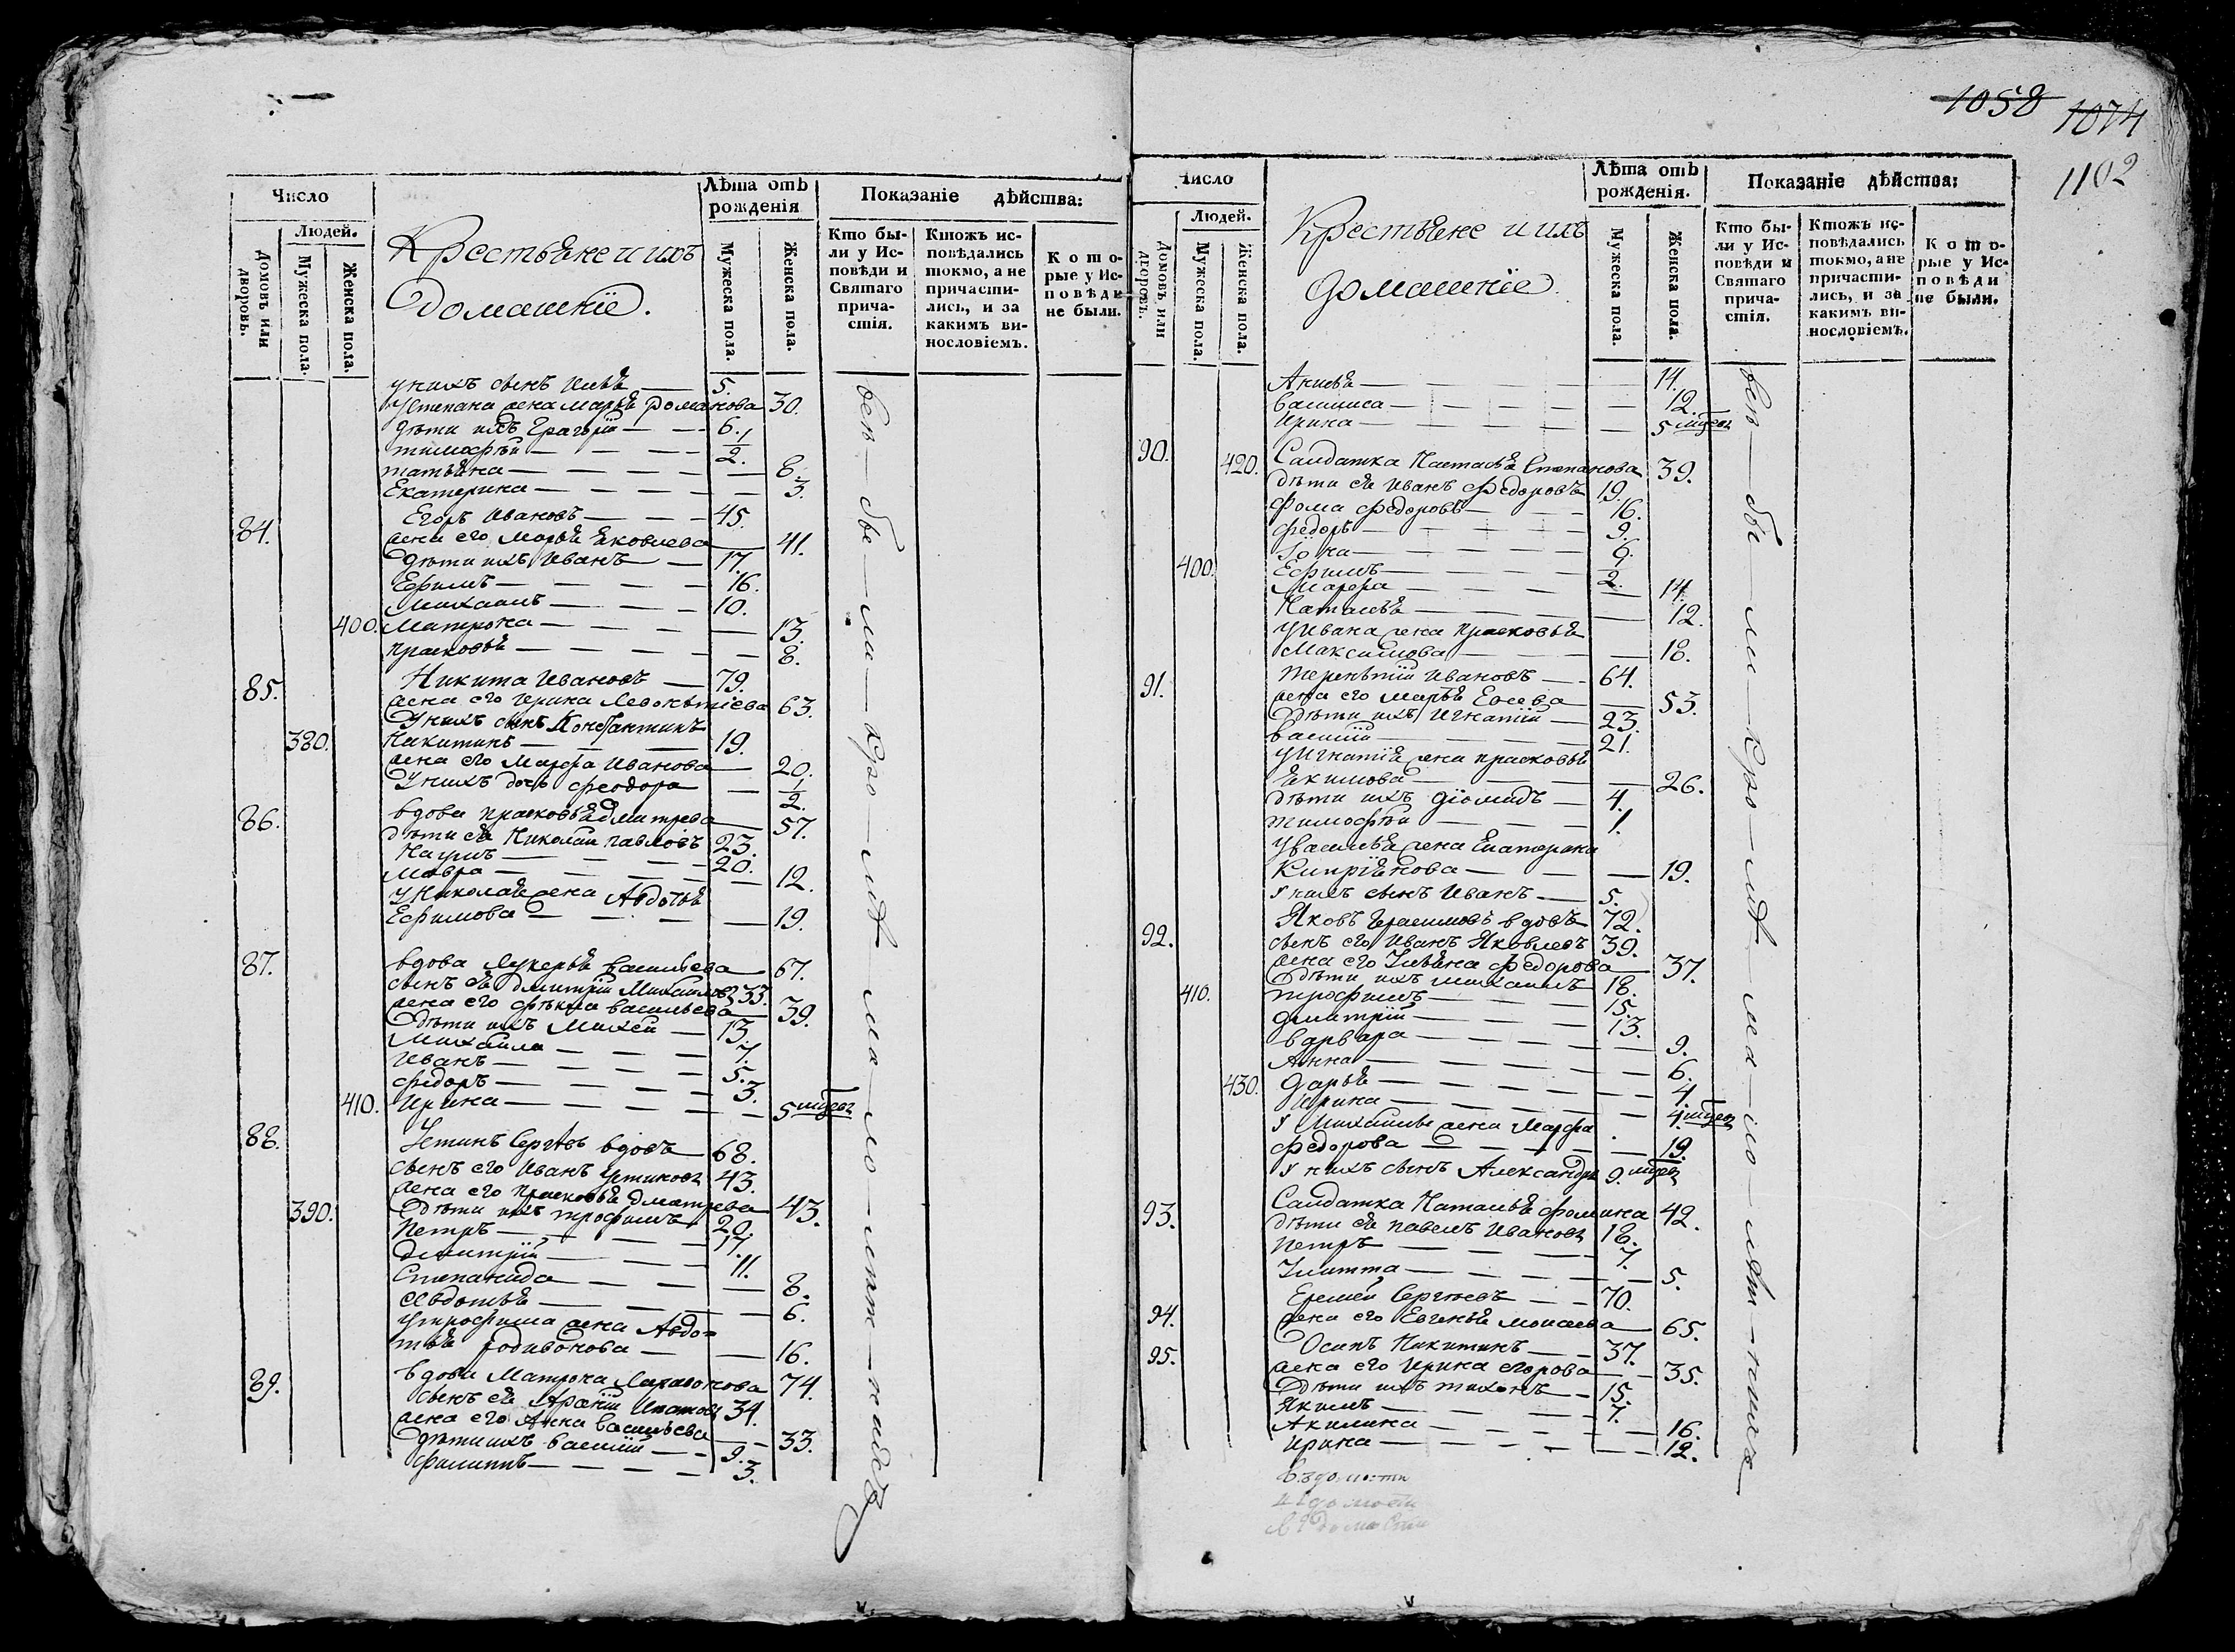 1058 1074
1102
Число
Лѣта отъ рожденія
Показаніе дѣйства:
Людей.
Домовъ или дворовъ.
Мужеска пола.
Женска пола.
Крестьяне и ихъ
Домашніе.
Мужеска пола.
Женска пола.
Кто бы-
ли у Ис-
повѣди и
Святаго
прича-
стія.
Ктожъ ис-
повѣдались
токмо, а не
причасти-
лись, и за
какимъ ви-
нословіемъ.
Кото-
рые у Ис-
повѣди
не были.
у нихъ сынъ Илья — 5.
У Степана жена Марья Романова 30.
дѣти ихъ Григорій — 6.
тимофѣй — 1/2.
татьяна — 8.
Екатерина — 3.
84. Егоръ Ивановъ — 45.
жена его Марья Яковлева — 41.
Дѣти ихъ Иванъ — 17.
Ефимъ — 16.
Михаилъ — 10.
400. Матрона — 13.
прасковья — 8.
85. Никита Ивановъ — 79.
жена его Ирина Леонтіева 63.
У нихъ сынъ Константинъ
380. Никитинъ — 19.
жена его Марфа Иванова — 20.
У нихъ дочь феодора — 1/2.
86. вдова прасковья дмитрева — 57.
дѣти ея Николай павловъ 23.
Наумъ — 20.
Мавра — 12.
у Николая жена Авдотья
Ефимова — 19.
87. вдова Лукерья васильева — 67.
сынъ ея дмитрій Михайловъ 33.
жена его фекла васильева — 39.
Дѣти ихъ Михей — 13.
Михайла — 7.
Иванъ — 5.
федоръ — 3.
410. Ирина — 5 мцев
88. Устинъ Сергѣевъ вдовъ — 68.
сынъ его Иванъ Устиновъ 43.
жена его прасковья дмитрева 43.
390. Дѣти ихъ трофимъ — 20.
Петръ — 17.
Дмитрій — 11.
Степанида — 8.
Евдотья — 6.
у трофима жена Авдо=
тья родивонова — 16.
89. вдова Матрона 74.
сынъ ея Ипатовъ 34.
жена его Анна васильева — 33.
дѣти ихъ василій — 9.
филиппъ — 3.
всѣ — бы — ли — кро — мѣ — ма — ло — лѣт — нихъ
Число
Лѣта отъ рожденія.
Показаніе дѣйства:
Людей.
Домовъ или дворовъ.
Мужеска пола.
Женска пола.
Крестьяне и ихъ
домашніе.
Мужеска пола.
Женска пола.
Кто бы-
ли у Ис-
повѣди и
Святаго
прича-
стія.
Ктожъ ис-
повѣдались
токмо, а не
причасти-
лись, и за
какимъ ви-
нословіемъ.
Кото-
рые у Ис-
повѣди
не были.
Анисья — 14.
василиса — 12.
Ирина — 5 мцев
90. 420. Салдатка Настасья Степанова 39.
дѣти ея Иванъ федоровъ 19.
фома федоровъ — 16.
федоръ — 9.
Іона — 6.
400. Ефимъ — 1/2.
Марфа — 14.
Наталья — 12.
у Ивана жена прасковья
Максимова — 18.
91. терентій Ивановъ — 64.
жена его Марья Евсева — 53.
Дѣти ихъ Игнатій — 23.
василій — 21.
у Игнатія жена прасковья
Якимова — 26.
дѣти ихъ діомидъ — 4.
тимофѣй — 1.
у василья жена Екатерина
Кипріянова — 19.
у нихъ сынъ Иванъ — 5.
92. Яковъ Герасимовъ вдовъ 72.
сынъ его Иванъ Яковлевъ 39.
жена его Ульяна федорова 37.
Дѣти ихъ михаилъ 18.
410. трофимъ — 15.
дмитрій — 13.
варвара — 9.
Анна — 6.
430. дарья — 4.
Ирина — 4 мцев
у Михайлы жена Марфа
федорова — 19.
у нихъ сынъ Александръ 9. мцев
93. Салдатка Наталья фомина 42.
дѣти ея павелъ Ивановъ 18.
петръ — 7.
Улитта — 5.
94. Еремей Сергѣевъ — 70.
жена его Евгенья моисеева 65.
95. Осипъ Никитинъ — 37.
жена его Ирина егорова — 35.
Дѣти ихъ тихонъ — 15.
Якимъ — 7.
Акилина — 16.
Ирина — 12.
всѣ — бы — ли — кро — мѣ — ма — ло — лѣт — нихъ